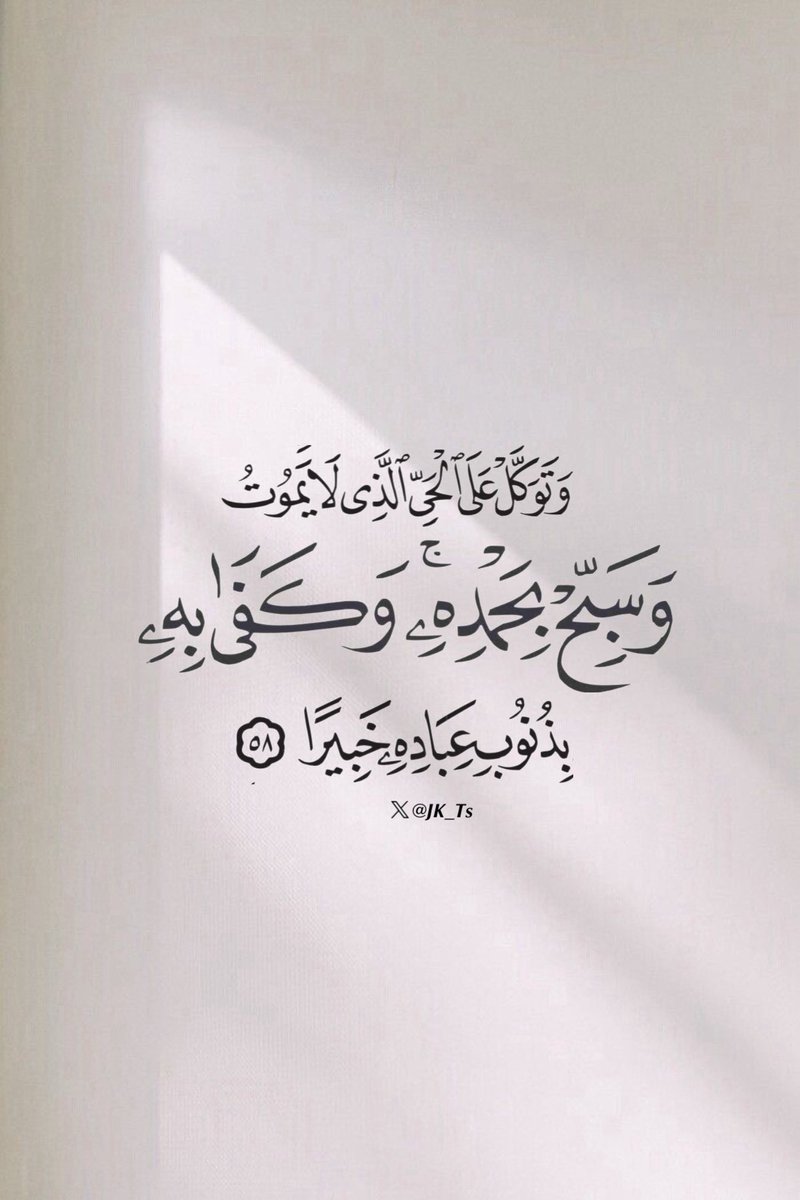 وَتَوَكَّلْ عَلَى ٱلْحَىِّ ٱلَّذِى لَا يَمُوتُ
وَسَبِّحْ بِحَمْدِهِۦ ۚ وَكَفَىٰ بِهِۦ
بِذُنُوبِ عِبَادِهِۦ خَبِيرًا ٥٨
𝕏 @JK_Ts